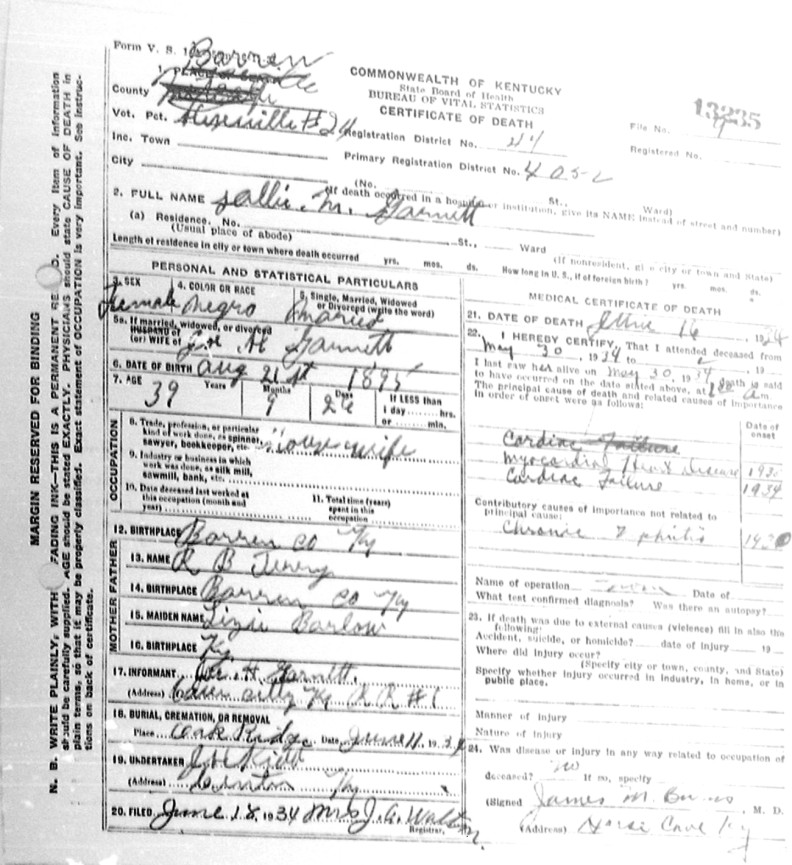 Form V. S. 1
Barren
1. PLACE OF DEATH
County
COMMONWEALTH OF KENTUCKY
State Board of Health
BUREAU OF VITAL STATISTICS
CERTIFICATE OF DEATH
13235
File No.
Registered No.
Vot. Pct. Hiseville
Registration District No. 44
Inc. Town
Primary Registration District No. 4052
City
(No. St., Ward)
(If death occurred in a hospital or institution, give its NAME instead of street and number)
2. FULL NAME Sallie. M. Garnett
(a) Residence. No. St., Ward
(Usual place of abode)
(If nonresident, give city or town and State)
Length of residence in city or town where death occurred yrs. mos. ds. How long in U. S., if of foreign birth? yrs. mos. ds.
PERSONAL AND STATISTICAL PARTICULARS
3. SEX 4. COLOR OR RACE 5. Single, Married, Widowed
or Divorced (write the word)
Female Negro Married
5a. If married, widowed, or divorced
HUSBAND of
(or) WIFE of H Garnett
6. DATE OF BIRTH Aug 21st 1895
7. AGE Years Months Days If LESS than
39 9 26 1 day hrs.
or min.
OCCUPATION
8. Trade, profession, or particular
kind of work done, as spinner,
sawyer, bookkeeper, etc. House wife
9. Industry or business in which
work was done, as silk mill,
sawmill, bank, etc.
10. Date deceased last worked at
this occupation (month and
year)
11. Total time (years)
spent in this
occupation
12. BIRTHPLACE Barren Co Ky
MOTHER FATHER
13. NAME R B Terry
14. BIRTHPLACE Barren Co Ky
15. MAIDEN NAME Lizzie Barlow
16. BIRTHPLACE Ky
17. INFORMANT H Garnett
(Address) Ky R R #1
18. BURIAL, CREMATION, OR REMOVAL
Place Oak Ridge Date June 11, 1934
19. UNDERTAKER
(Address) Ky
20. FILED June 18, 1934 Mrs J. A. Walton
Registrar.
MEDICAL CERTIFICATE OF DEATH
21. DATE OF DEATH June 16, 1934
22. I HEREBY CERTIFY, That I attended deceased from
May 30, 1934 to , 19
I last saw her alive on May 30, 1934 death is said
to have occurred on the date stated above, at m.
The principal cause of death and related causes of importance
in order of onset were as follows:
Date of
onset
Cardiac Failure
Myocardial Heart Disease 1930
Cardiac Failure 1934
Contributory causes of importance not related to
principal cause:
Chronic Nephritis 1930
Name of operation Date of
What test confirmed diagnosis? Was there an autopsy?
23. If death was due to external causes (violence) fill in also the
following:
Accident, suicide, or homicide? date of injury 19
Where did injury occur?
(Specify city or town, county, and State)
Specify whether injury occurred in industry, in home, or in
public place.
Manner of injury
Nature of injury
24. Was disease or injury in any way related to occupation of
deceased? no If so, specify
(Signed James M. , M. D.
(Address) Horse Cave Ky
MARGIN RESERVED FOR BINDING
N. B. WRITE PLAINLY, WITH FADING INK—THIS IS A PERMANENT RE D. Every item of information
should be carefully supplied. AGE should be stated EXACTLY. PHYSICIANS should state CAUSE OF DEATH in
plain terms, so that it may be properly classified. Exact statement of OCCUPATION is very important. See instruc-
tions on back of certificate.